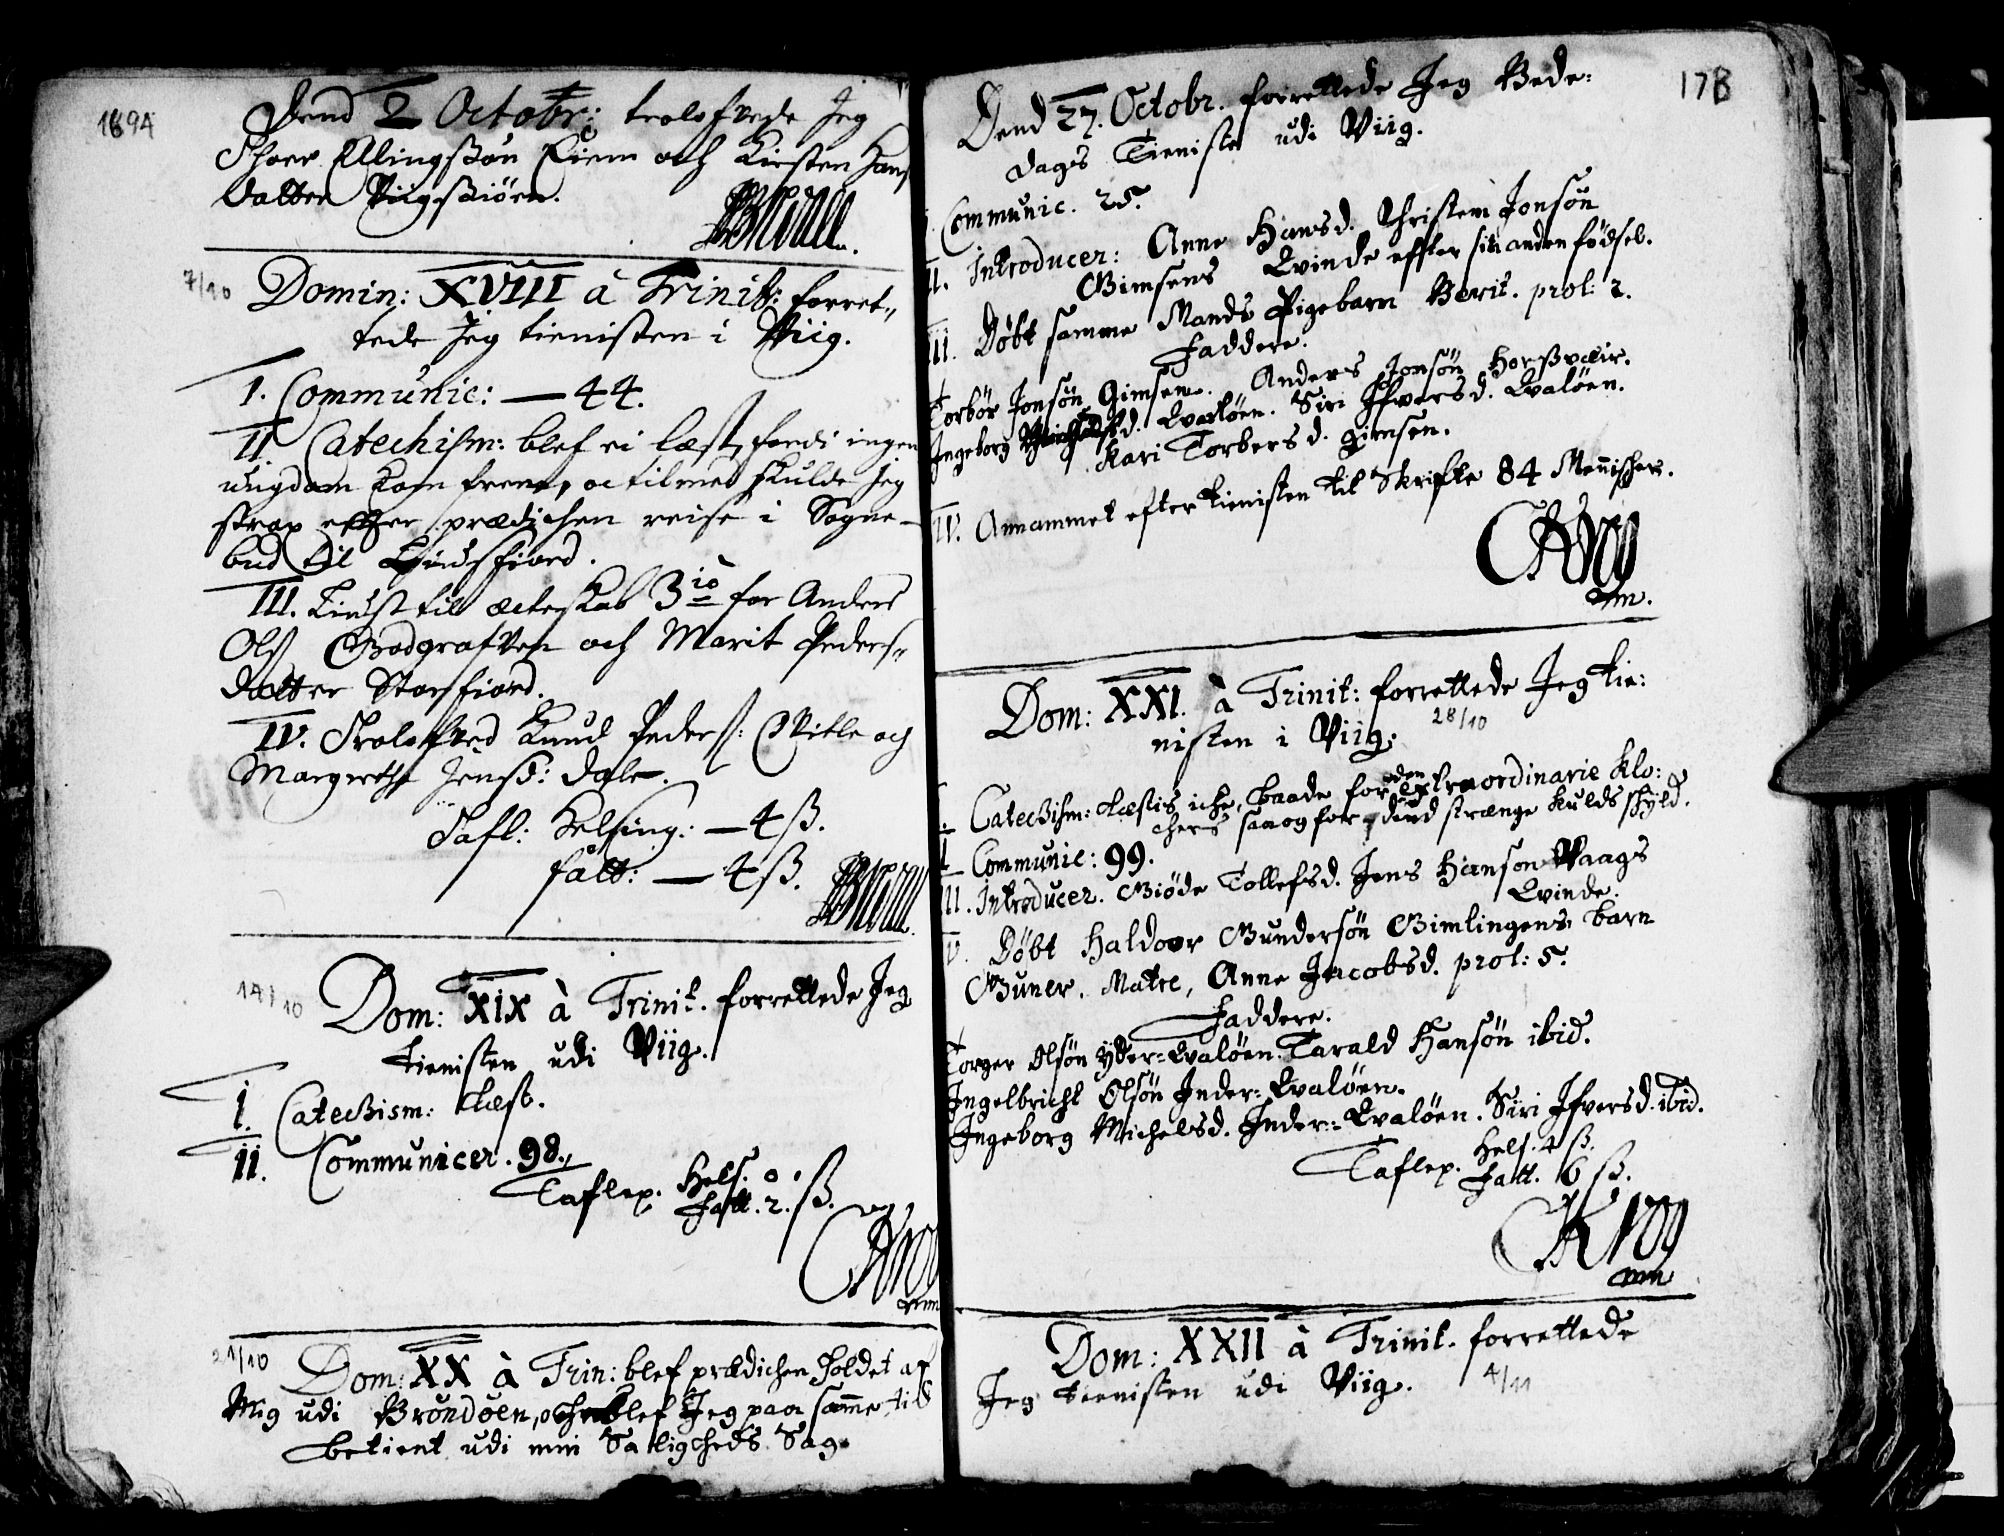 1694
Dend 2 Octobr: trolofvede Jeg
Thoer Ellingssøn och Kirsten Hans
datter Viigssiøen.
7/10
Domin: XVIII à Trinit: forret„
tede Jeg tienisten i Viig.
I. Communic: — 44.
II Catechism: blef ei læst, fordi ingen
ungdom kom frem, oc tilmed skulde Jeg
strax effter prædichen reise i Sogne-
bud til Lindsfiord.
III. Liust til ægteskab 3io for Anders
Ols Godgrafven och Marit Peders„
datter Storfiord.
IV. Trolofved Knud Peders: Vitle och
Margrethe Jensd: Dale.
Tafl: Helsing: — 4 ß.
fatt: — 4 ß.
14/10
Dom: XIX à Trinit. forrettede Jeg
tienisten udi Viig.
I. Catechism: Læst.
II. Communicer. 98.
Taflep. Hels. 0
Fatt. 2. ß.
Krog
mm
21/10
Dom: XX à Trin: blef prædichen holdet af
Mig udi Brøndøen, och blef Jeg paa samme tid
betient udi min Saligheds Sag.
178
Dend 27. Octobr. forrettede Jeg Bede:
dags Tieniste udi Viig.
Communic. 25.
II. Introducer: Anne Hansd. Christen Jonsøn
Gimsens Qvinde effter sin anden fødsel.
III. Døbt samme Mands Pigebarn Berit. prol: 2.
Faddere.
Torbør Jonsøn Gimsen. Anders Jonsøn Horssvær.
Ingeborg d. Qvaløen. Siri Ifversd. Qvaløen.
Kari Torbersd. Gimsen.
IV. Annammet efter tienisten til Skrifte 84 Mennischer.
Krog
mm.
Dom: XXI. à Trinit: forrettede Jeg tie:
nisten i Viig.
28/10
Catechism: Læstis iche, baade for den extraordinarie Klo:
chens saa og for dend strænge kulds skyld.
Communic: 99.
III. Introducer. Giøde Tollefsd. Jens Hanson Vaags
Qvinde.
IV. Døbt Haldoer Gundersøn Gimlingens barn
Guner. Matre, Anne Jacobsd. prol: 5.
Faddere.
Torger Olsøn Yder=Qvaløen. Tarald Hansøn ibid.
Ingelbricht Olsøn Inder=Qvaløen.
Ingeborg Michelsd. Inder=Qvaløen. Siri Ifversd. ibid.
Taflep. Hels. 4 ß.
Fatt. 6 ß.
Krog
mm
Dom: XXII à Trinit. forrettede
Jeg tienisten udi Viig.
4/11